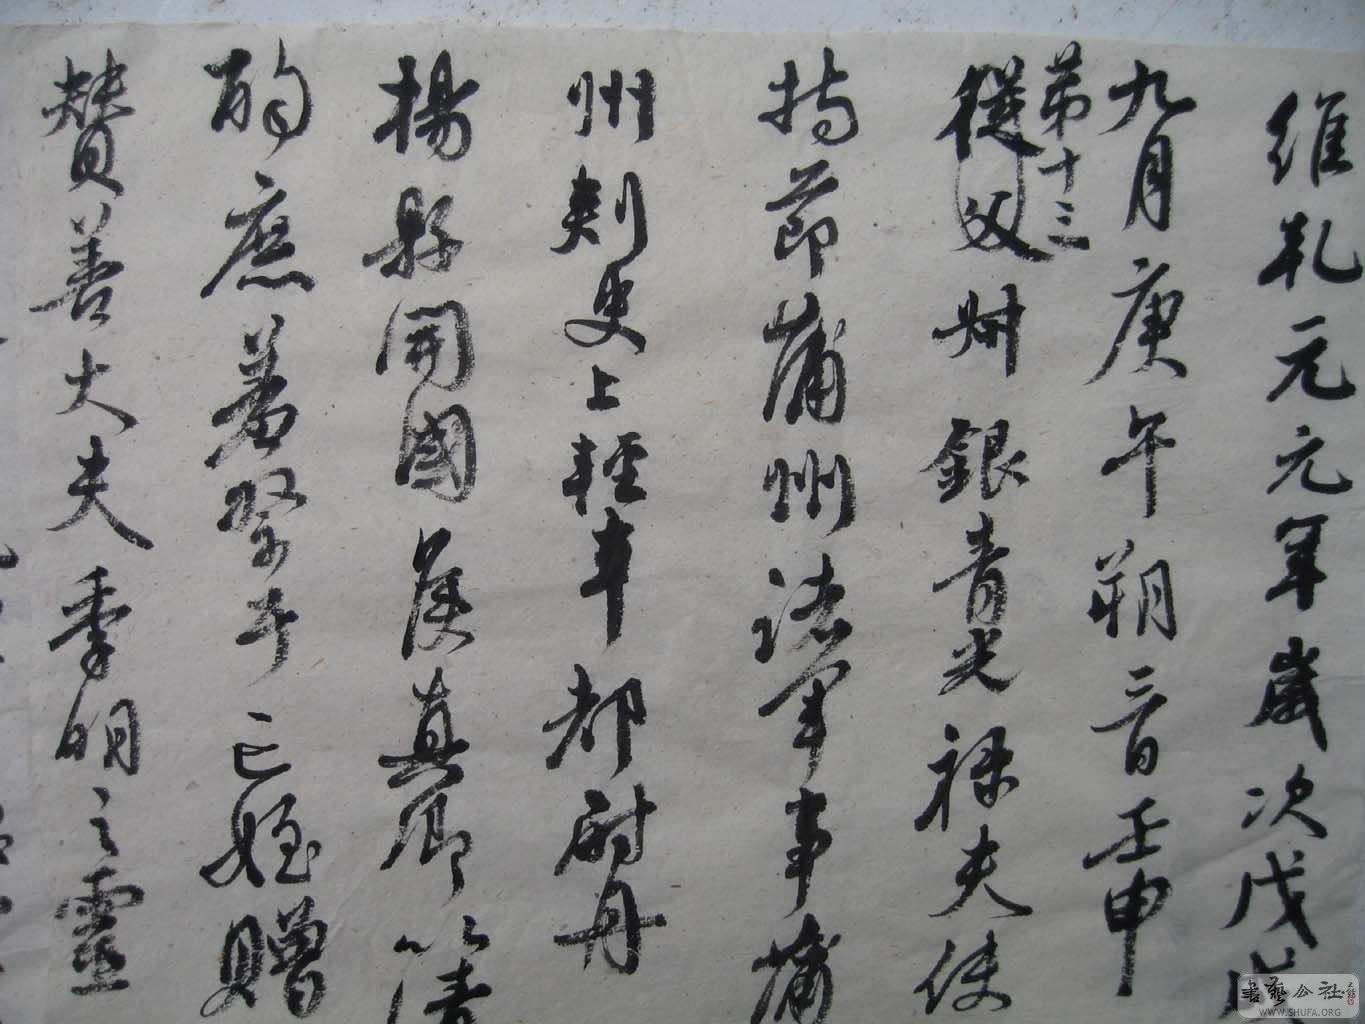 維乾元元年歲次戊戌
九月庚午朔三日壬申
第十三
從父卅銀青光祿夫使
持節蒲州諸軍事蒲
州刺史上輕車都尉丹
楊縣開國侯真卿以清
酌庶羞祭于亡姪贈
贊善大夫季明之靈
書藝公社
WWW.SHUFA.ORG